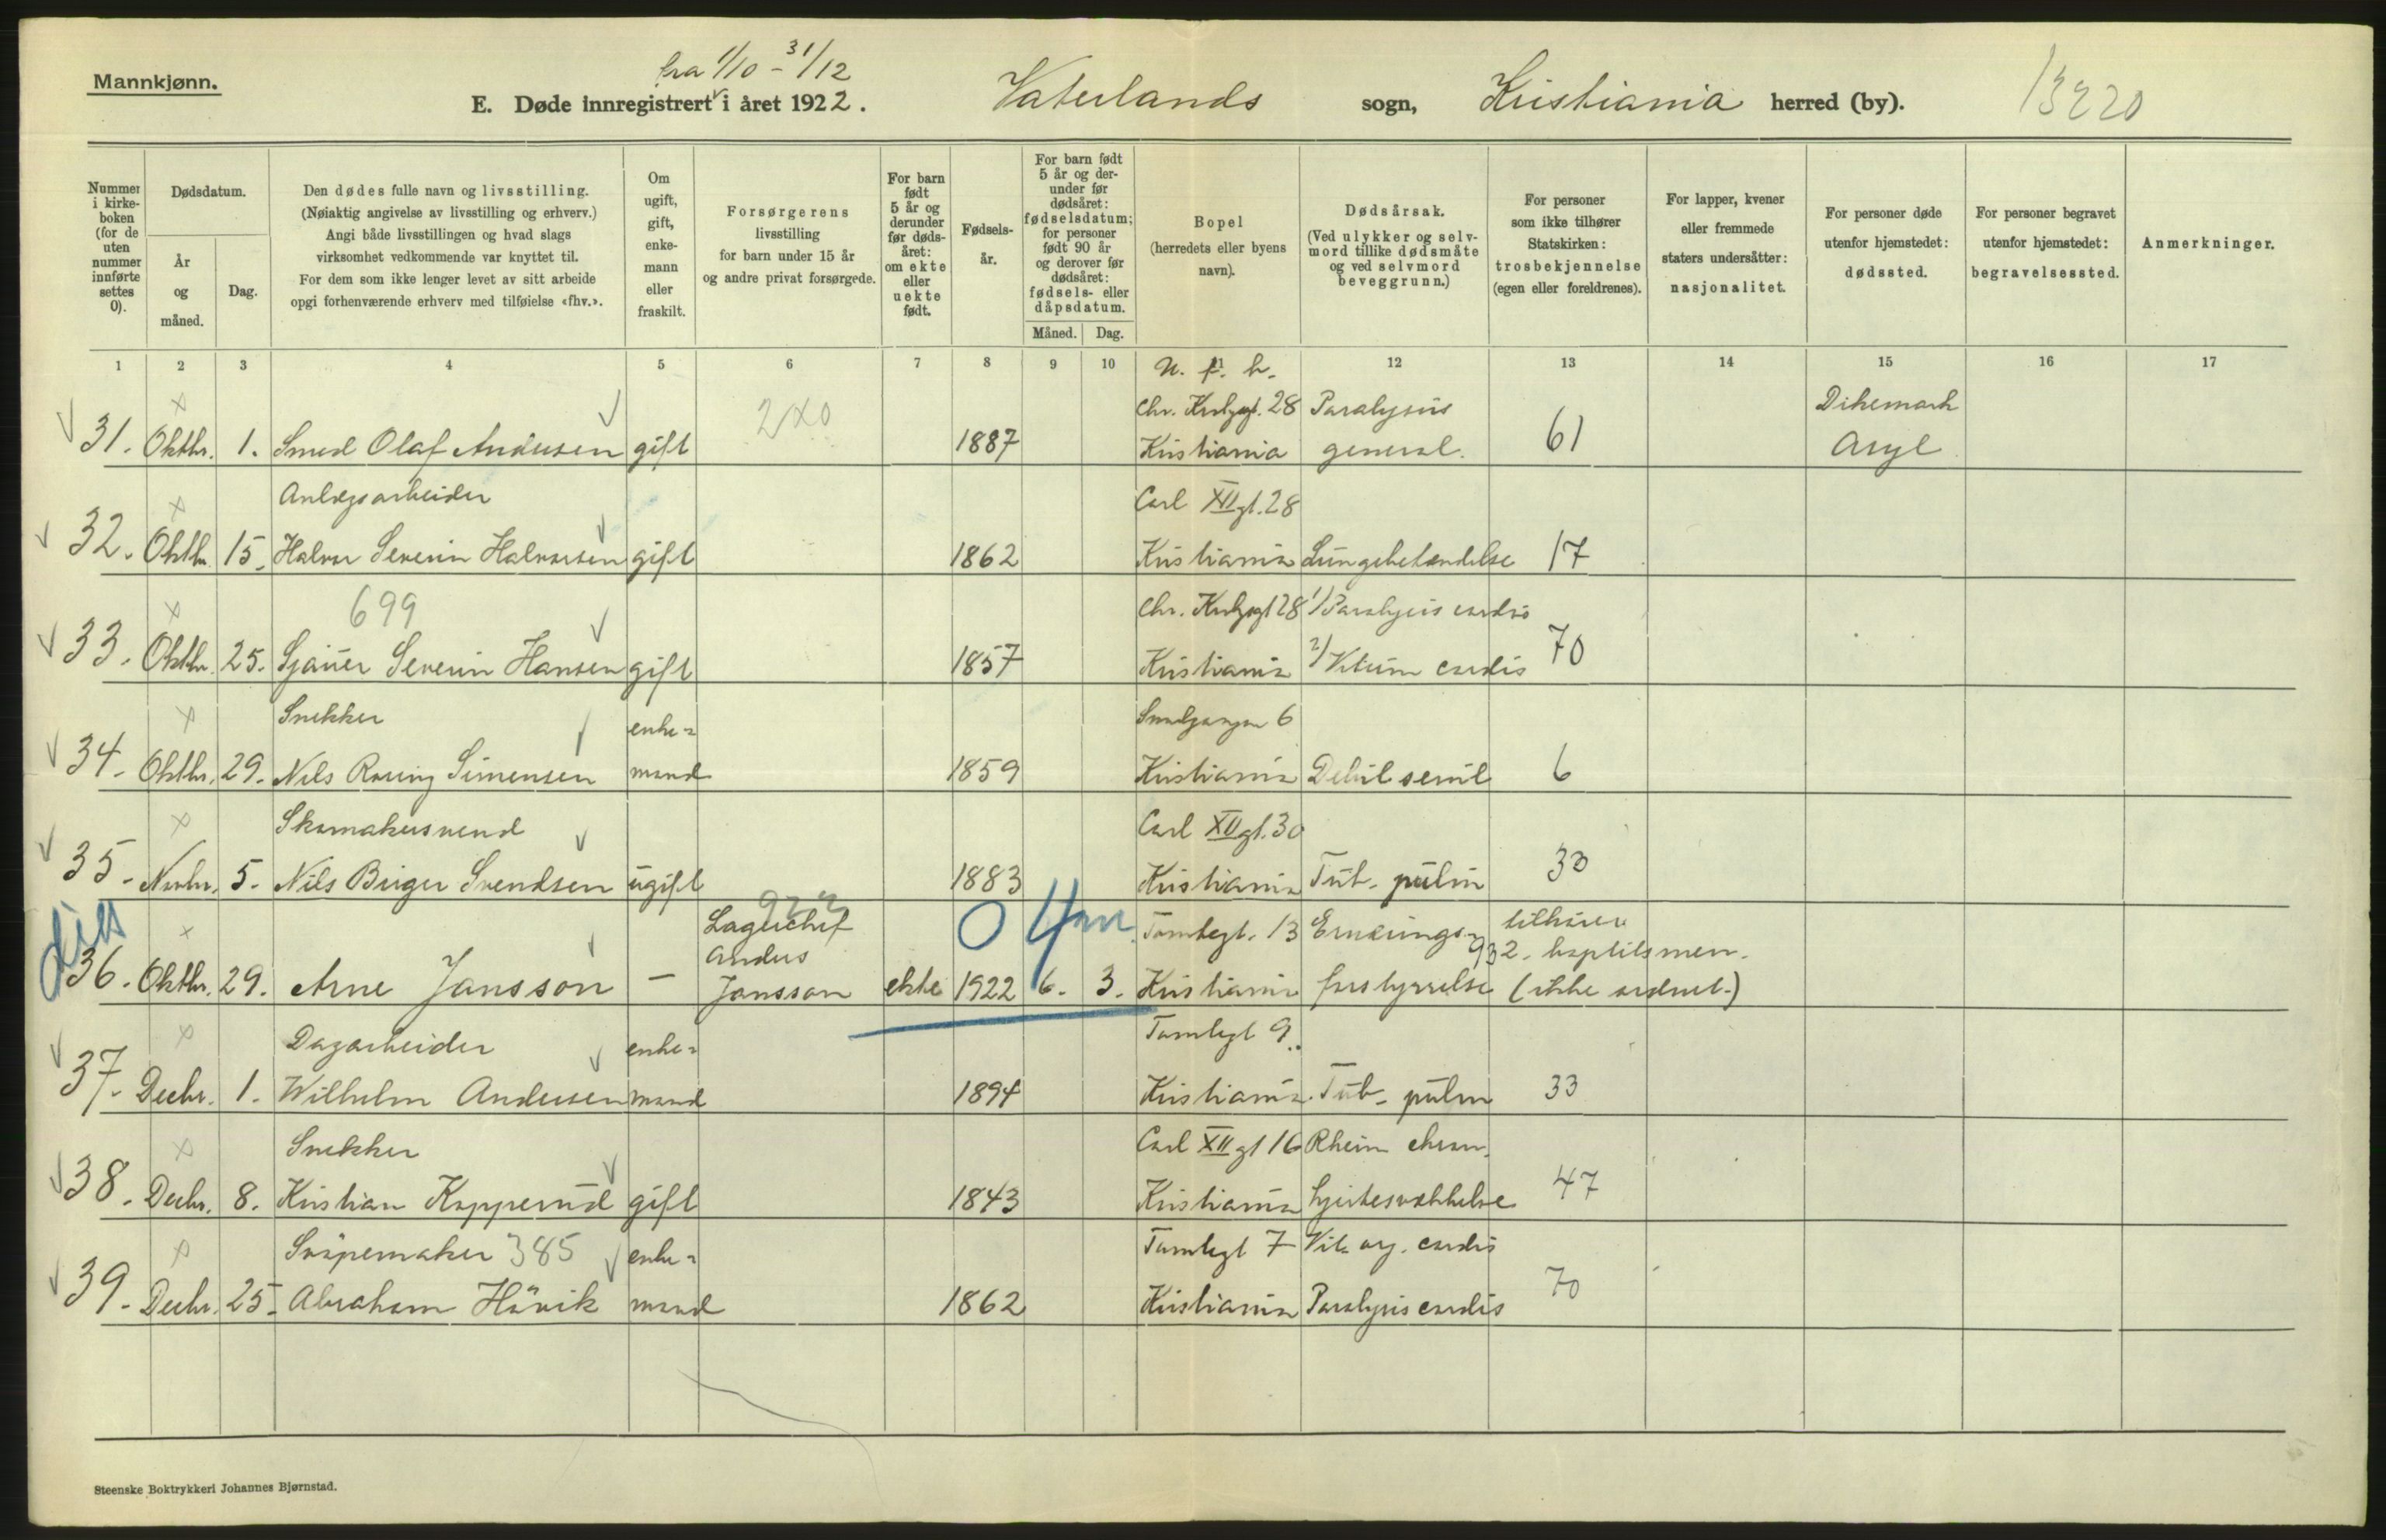 Mannkjønn.
fra 1/10 – 31/12
E. Døde innregistrert i året 1922. Vaterlands sogn, Kristiania herred (by). 13220
Nummer i kirkeboken (for de uten nummer innførte settes 0).
Dødsdatum.
År og måned.
Dag.
Den dødes fulle navn og livsstilling.
(Nøiaktig angivelse av livsstilling og erhverv.)
Angi både livsstillingen og hvad slags
virksomhet vedkommende var knyttet til.
For dem som ikke lenger levet av sitt arbeide
opgi forhenværende erhverv med tilføielse «fhv.».
Om ugift, gift, enkemann eller fraskilt.
Forsørgerens
livsstilling
for barn under 15 år
og andre privat forsørgede.
For barn født 5 år og derunder før dødsåret: om ekte eller uekte født.
Fødselsår.
For barn født 5 år og derunder før dødsåret: fødselsdatum; for personer født 90 år og derover før dødsåret: fødsels- eller dåpsdatum.
Måned. Dag.
Bopel
(herredets eller byens
navn).
Dødsårsak.
(Ved ulykker og selvmord tillike dødsmåte og ved selvmord beveggrunn.)
For personer
som ikke tilhører
Statskirken:
trosbekjennelse
(egen eller foreldrenes).
For lapper, kvener
eller fremmede
staters undersåtter:
nasjonalitet.
For personer døde
utenfor hjemstedet:
dødssted.
For personer begravet
utenfor hjemstedet:
begravelsessted.
Anmerkninger.
1 2 3 4 5 6 7 8 9 10 11 12 13 14 15 16 17
2x0 Chr. 28 Paralysis Dikemark
31. Oktbr. 1. Smed Olaf Andersen gift 1887 Kristiania general. 61 Asyl
Anlegsarbeider Carl XII gt. 28
32. Oktbr. 15. Halvor Severin Halvorsen gift 1862 Kristiania Lungebetændelse 17
699 Chr. 28 1/ Paralysis cordis
33. Oktbr. 25. Sjauer Severin Hansen gift 1857 Kristiania 2/ Vitium cordis 70
Snekker enke= Smalgangen 6
34. Oktbr. 29. Nils Simensen mand 1859 Kristiania Debil senil 6
Skomakersvend Carl XII gt. 30
35. Novbr. 5. Nils Birger Svendsen ugift 1883 Kristiania Tub. pulm 33
Lagerchef 0 4 Tomtegt. 13 Ernærings- tilhører
Anders 932. baptitsmen.
36. Oktbr. 29. Arne Jansson — Jansson ekte 1922 6. 3. Kristiania forstyrrelse (ikke ordnet.)
Dagarbeider enke= Tomtegt 9
37. Decbr. 1. Wilhelm Andersen mand 1894 Kristiania Tub. pulm 33
Snekker Carl XII gt 16 Rheum chron.
38. Decbr. 8. Kristian Kopperud gift 1843 Kristiania hjertesvækkelse 47
Svøpemaker 385 enke= Tomtegt 7 Vit. org. cordis
39. Decbr. 25. Abraham Håvik mand 1862 Kristiania Paralysis cordis 70
Steenske Boktrykkeri Johannes Bjørnstad.